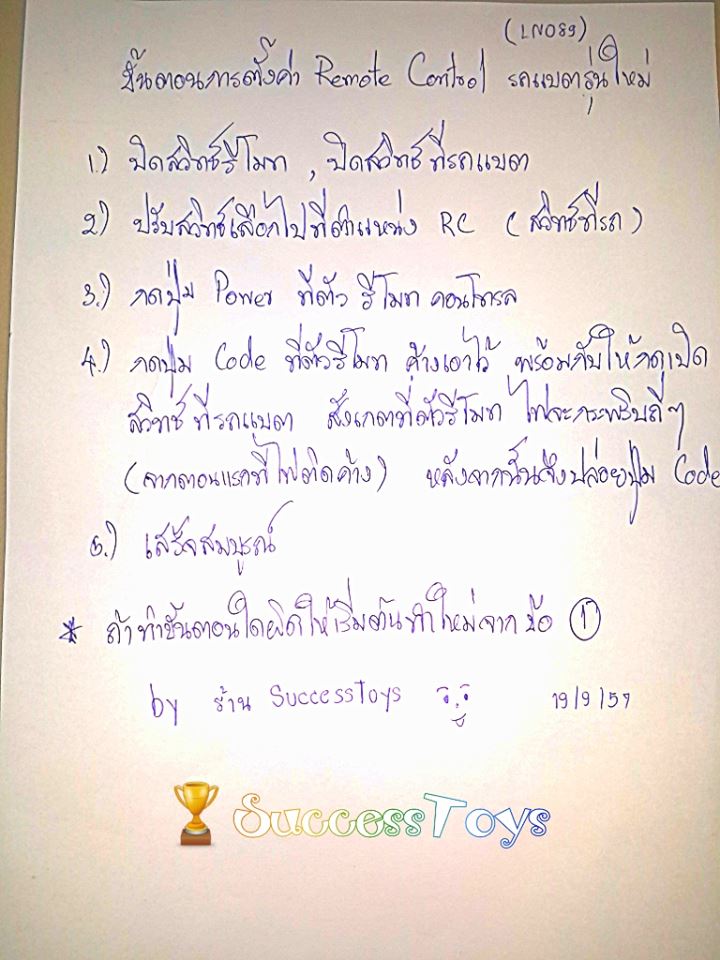 (LN089)
ขั้นตอนการตั้งค่า Remote Control รถแบตรุ่นใหม่
1.) ปิดสวิทช์รีโมท , ปิดสวิทช์ที่รถแบต
2.) ปรับสวิทช์เลือกไปที่ตำแหน่ง RC (สวิทช์ที่รถ)
3.) กดปุ่ม Power ที่ตัว รีโมทคอนโทรล
4.) กดปุ่ม Code ที่ตัวรีโมท ค้างเอาไว้ พร้อมกับให้กดเปิด
สวิทช์ ที่รถแบต สังเกตที่ตัวรีโมท ไฟจะกระพริบถี่ๆ
(จากตอนแรกที่ไฟติดค้าง) หลังจากนั้นจึงปล่อยปุ่ม Code
5.) เสร็จสมบูรณ์
* ถ้าทำขั้นตอนใดผิดให้เริ่มต้นทำใหม่จาก ข้อ 1
by ร้าน SuccessToys 19/9/59
SuccessToys